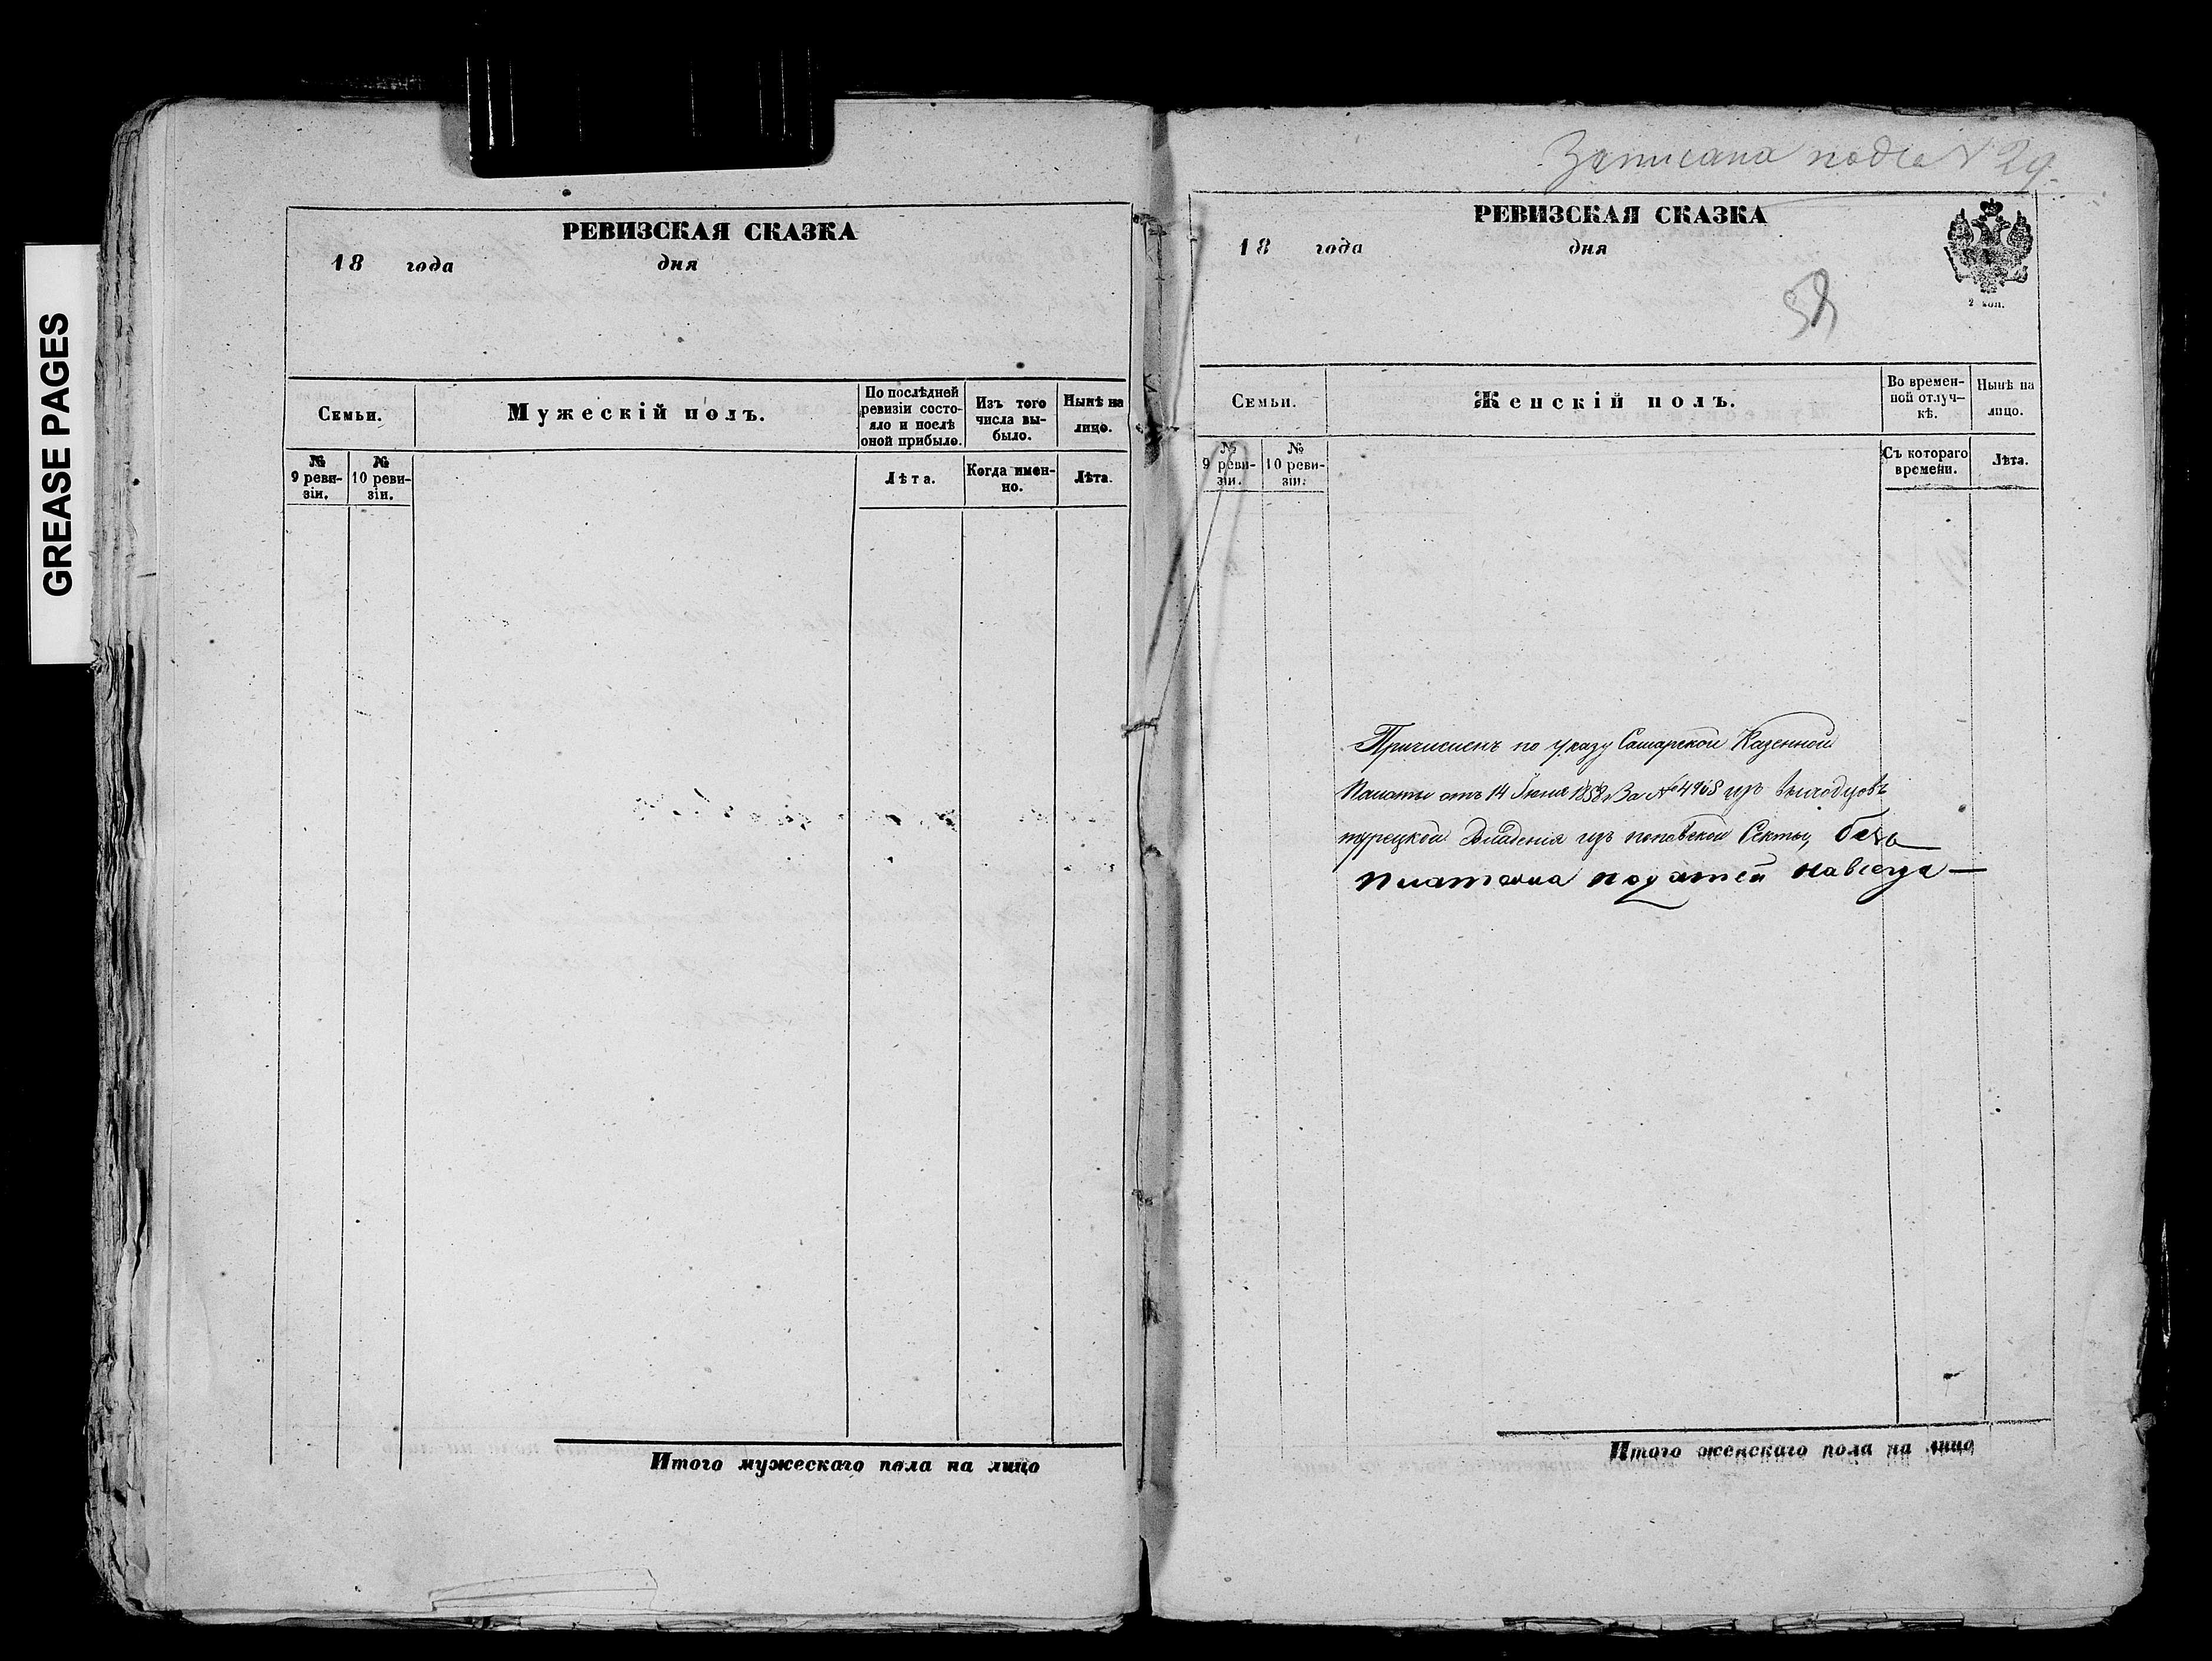 GREASE PAGES
РЕВИЗСКАЯ СКАЗКА
18 года дня
Семьи.
Мужескій полъ.
По послѣдней ревизіи состо-
яло и послѣ
оной прибыло.
Изъ того
числа вы-
было.
Нынѣ на
лицо.
№
9 реви-
зіи.
№
10 реви-
зіи.
Лѣта.
Когда имен-
но.
Лѣта.
Итого мужескаго пола на лицо
Записана №29.
РЕВИЗСКАЯ СКАЗКА
18 года дня
2 коп.
Семьи.
Женскій полъ.
Во времен-
ной отлуч-
кѣ.
Нынѣ на
лицо.
№
9 реви-
зіи.
№
10 реви-
зіи.
Съ котораго
времени.
Лѣта.
Причисленъ по указу Самарской Казенной
Палаты отъ 14 Июня 1858 За № изъ выходцовъ
турецкой Владения изъ поповской Секты, безъ
платежа податей навсегда —
Итого женскаго пола на лицо